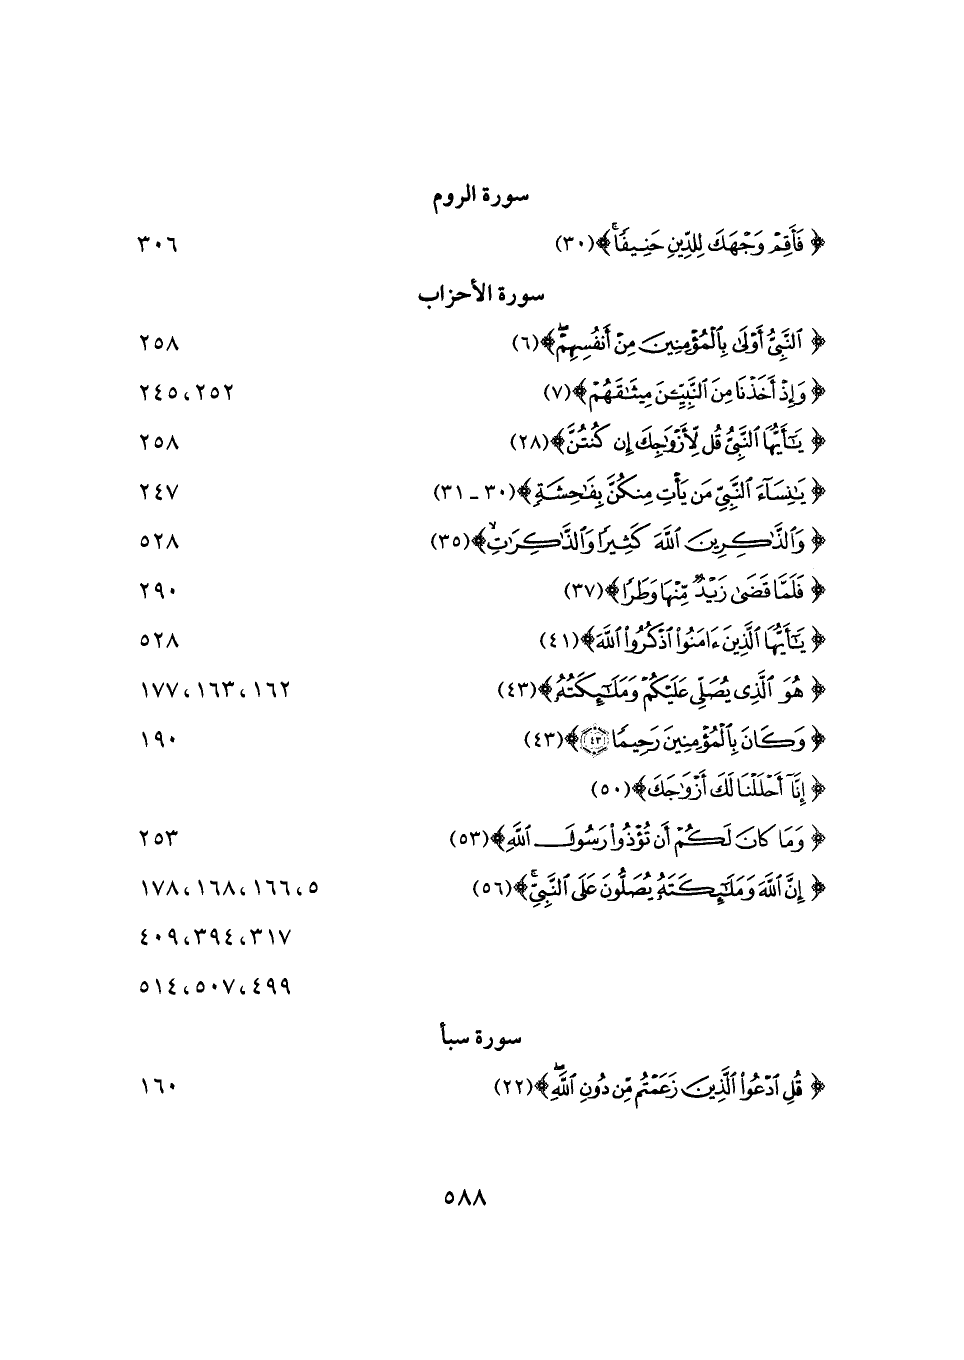 سورة الروم
﴿ فَأَقِمْ وَجْهَكَ لِلدِّينِ حَنِيفًاۚ﴾(٣٠) ٣٠٦
سورة الأحزاب
﴿ ٱلنَّبِىُّ أَوْلَىٰ بِٱلْمُؤْمِنِينَ مِنْ أَنفُسِهِمْۖ﴾(٦) ٢٥٨
﴿ وَإِذْ أَخَذْنَا مِنَ ٱلنَّبِيِّـۧنَ مِيثَٰقَهُمْ﴾(٧) ٢٤٥، ٢٥٢
﴿ يَٰٓأَيُّهَا ٱلنَّبِىُّ قُل لِّأَزْوَٰجِكَ إِن كُنتُنَّ﴾(٢٨) ٢٥٨
﴿ يَٰنِسَآءَ ٱلنَّبِىِّ مَن يَأْتِ مِنكُنَّ بِفَٰحِشَةٍ﴾(٣٠ ـ ٣١) ٢٤٧
﴿ وَٱلذَّٰكِرِينَ ٱللَّهَ كَثِيرًا وَٱلذَّٰكِرَٰتِۙ﴾(٣٥) ٥٢٨
﴿ فَلَمَّا قَضَىٰ زَيْدٌ مِّنْهَا وَطَرًا﴾(٣٧) ٢٩٠
﴿ يَٰٓأَيُّهَا ٱلَّذِينَ ءَامَنُوا۟ ٱذْكُرُوا۟ ٱللَّهَ﴾(٤١) ٥٢٨
﴿ هُوَ ٱلَّذِى يُصَلِّى عَلَيْكُمْ وَمَلَٰٓئِكَتُهُۥ﴾(٤٣) ١٦٢، ١٦٣، ١٧٧
﴿ وَكَانَ بِٱلْمُؤْمِنِينَ رَحِيمًا ٤٣﴾(٤٣) ١٩٠
﴿ إِنَّآ أَحْلَلْنَا لَكَ أَزْوَٰجَكَ﴾(٥٠)
﴿ وَمَا كَانَ لَكُمْ أَن تُؤْذُوا۟ رَسُولَ ٱللَّهِ﴾(٥٣) ٢٥٣
﴿ إِنَّ ٱللَّهَ وَمَلَٰٓئِكَتَهُۥ يُصَلُّونَ عَلَى ٱلنَّبِىِّۚ﴾(٥٦) ٥، ١٦٦، ١٦٨، ١٧٨
٣١٧، ٣٩٤، ٤٠٩
٤٩٩، ٥٠٧، ٥١٤
سورة سبأ
﴿ قُلِ ٱدْعُوا۟ ٱلَّذِينَ زَعَمْتُم مِّن دُونِ ٱللَّهِۖ﴾(٢٢) ١٦٠
٥٨٨